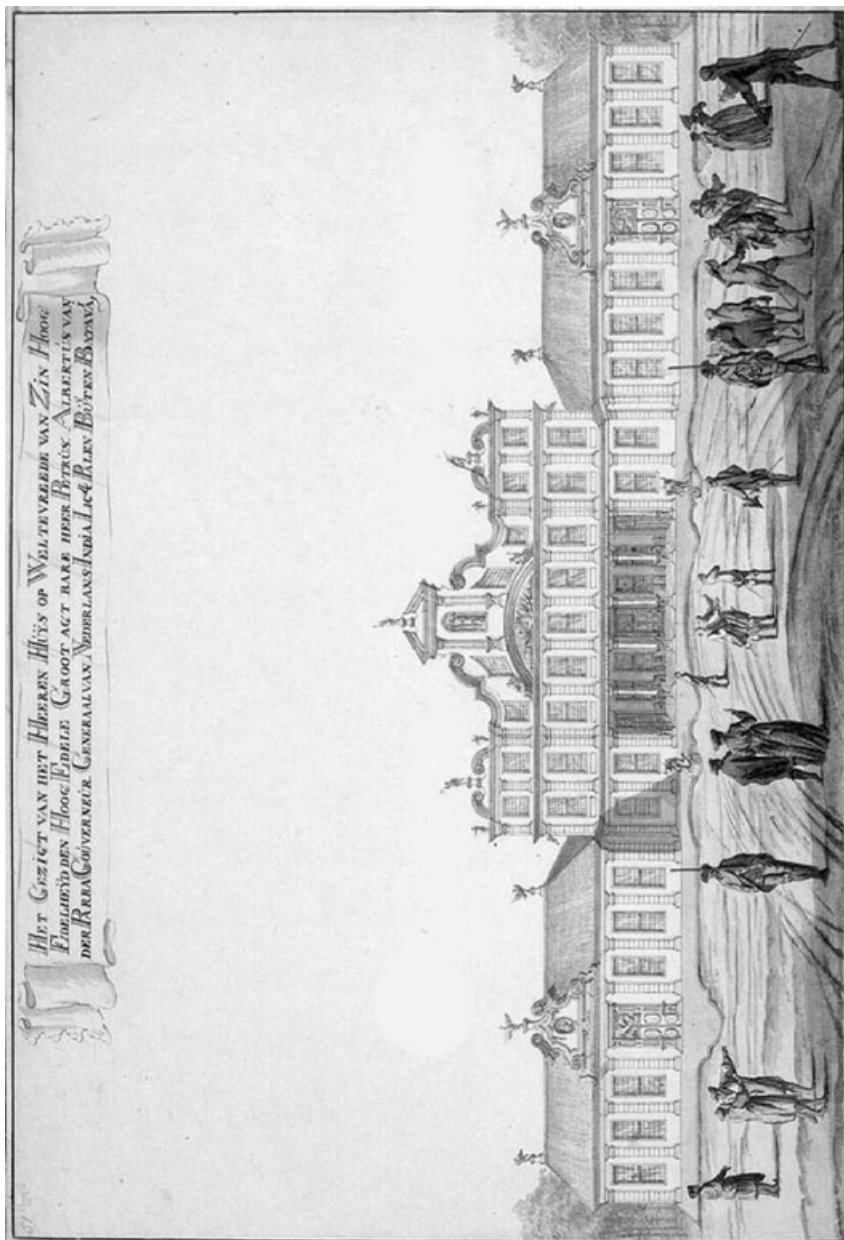 HET GEZIGT VAN HET HEEREN HUŸS OP WELTEVREEDE VAN ZIN HOOG
EDELHEŸD DEN HOOG EDELE GROOT AGT BARE HEER PETRUS ALBERTUS VAN
DER PARRA GOUVERNEUR GENERAAL VAN NEDERLANS INDIA LIGT PALEN BUTEN BATAVA,